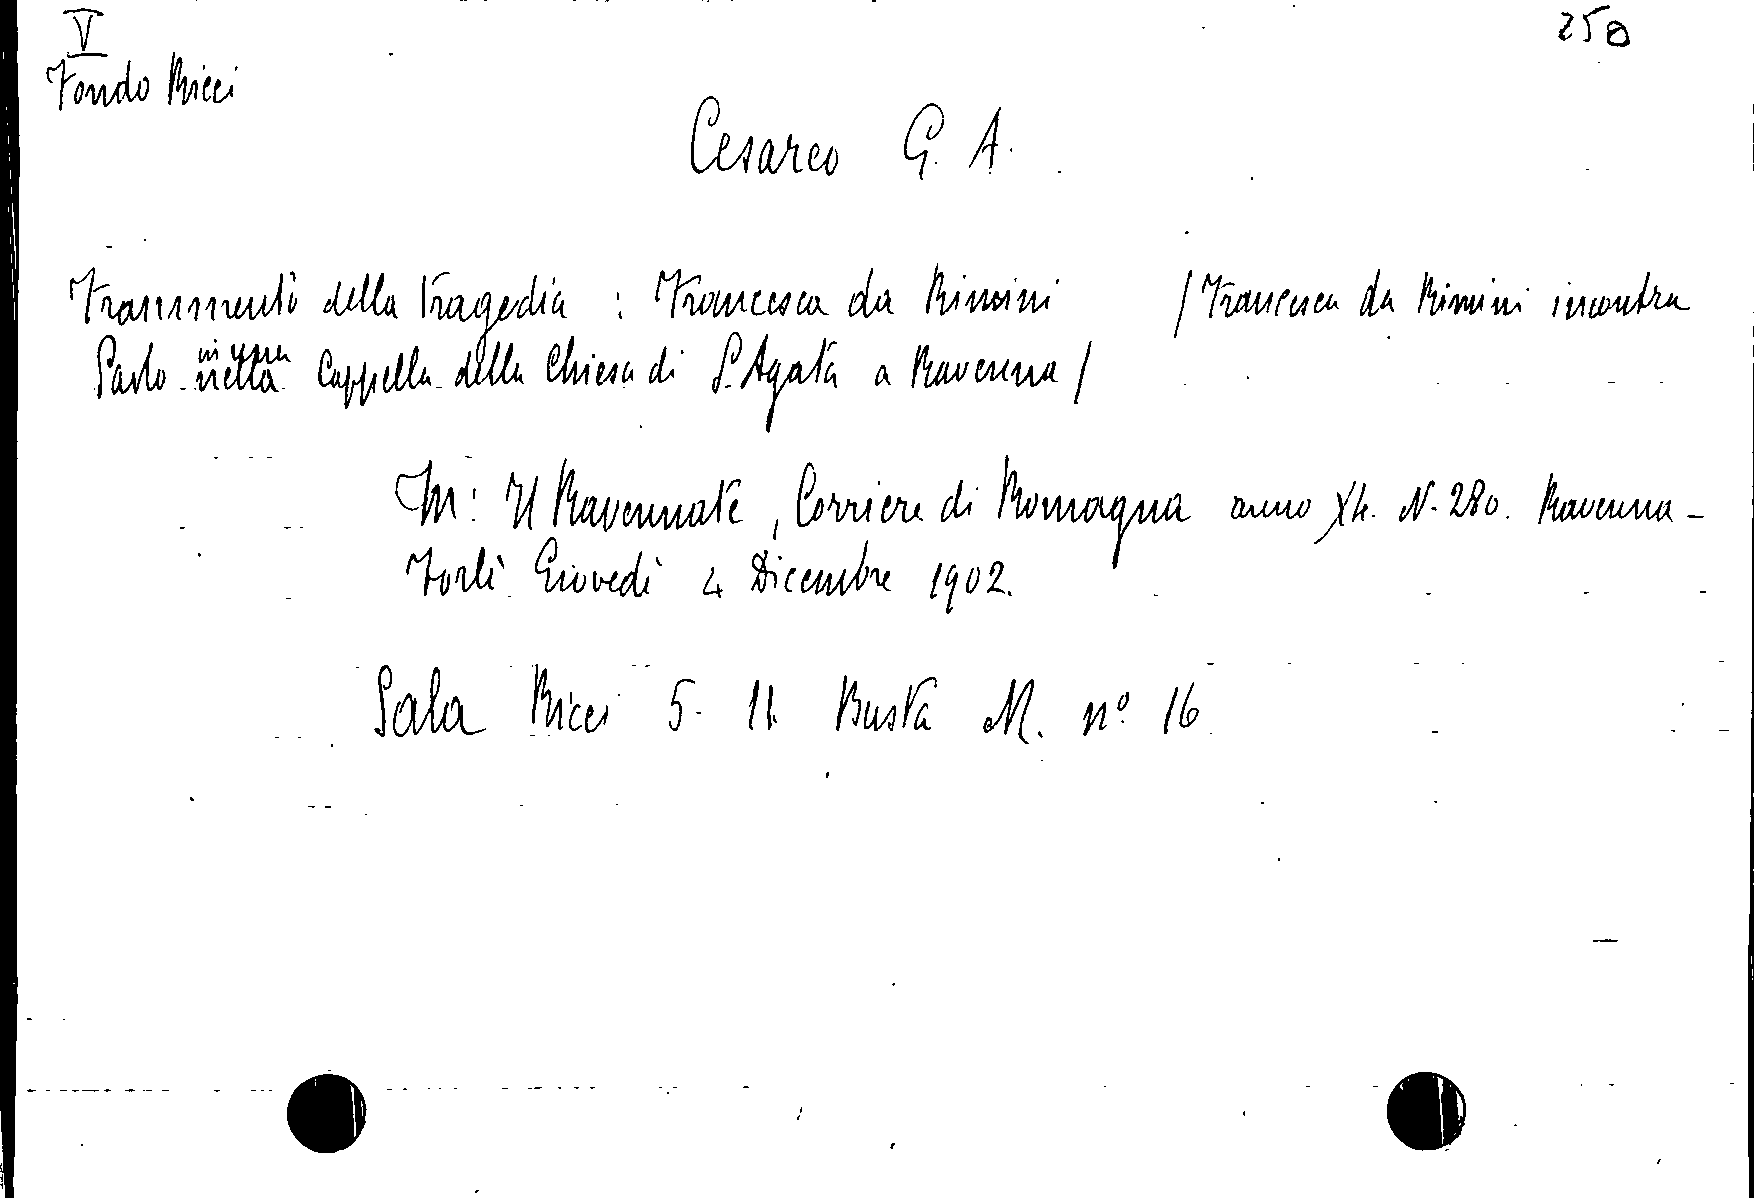 V
250
Fondo Ricci
Cesareo G. A.
Frammenti della tragedia : Francesca da Rimini /Francesca da Rimini incontra
in una
Paolo nella Cappella della Chiesa di S. Agata a Ravenna/
In: Il Ravennate, Corriere di Romagna anno N. 280. Ravenna -
Forlì Giovedì 4 Dicembre 1902.
Sala Ricci 5. 11. Busta M. nº 16